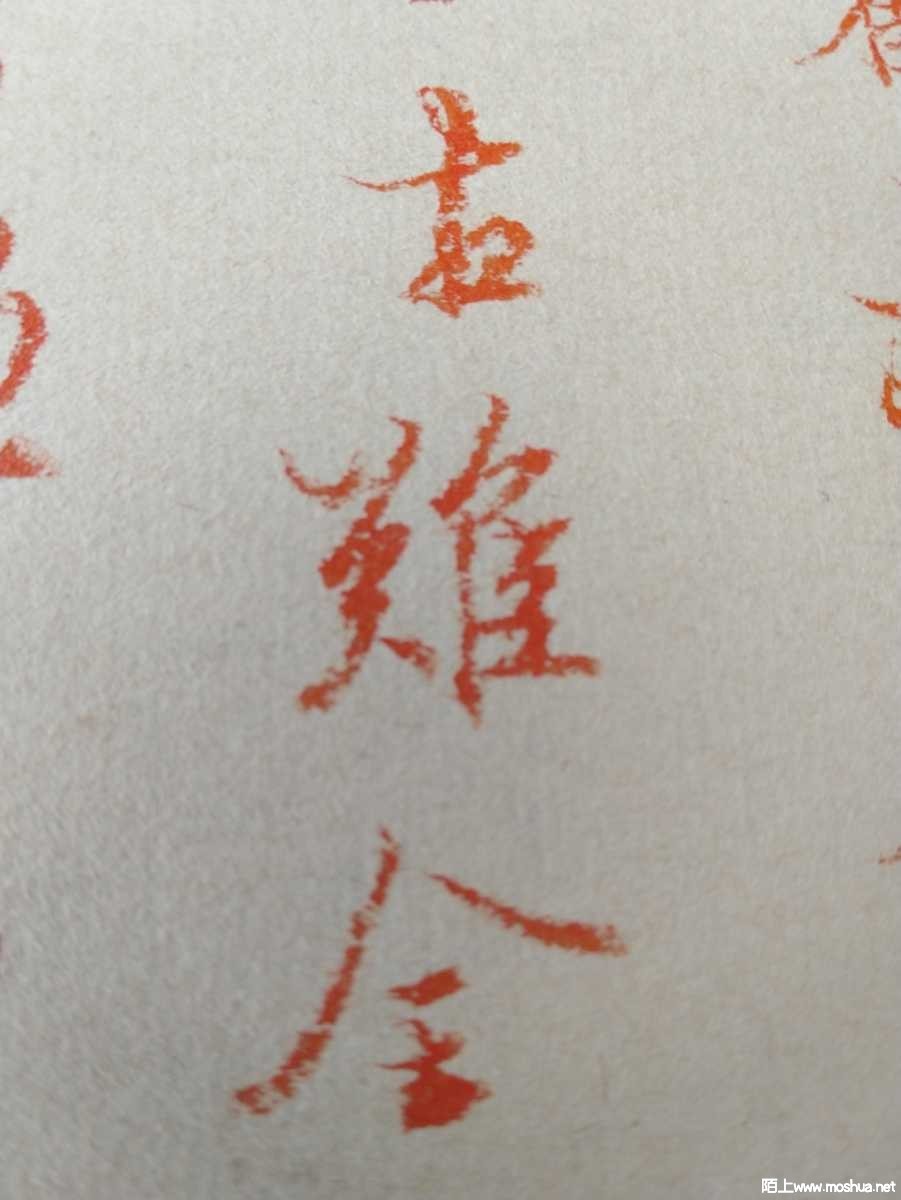 古難全
陌上www.moshua.net